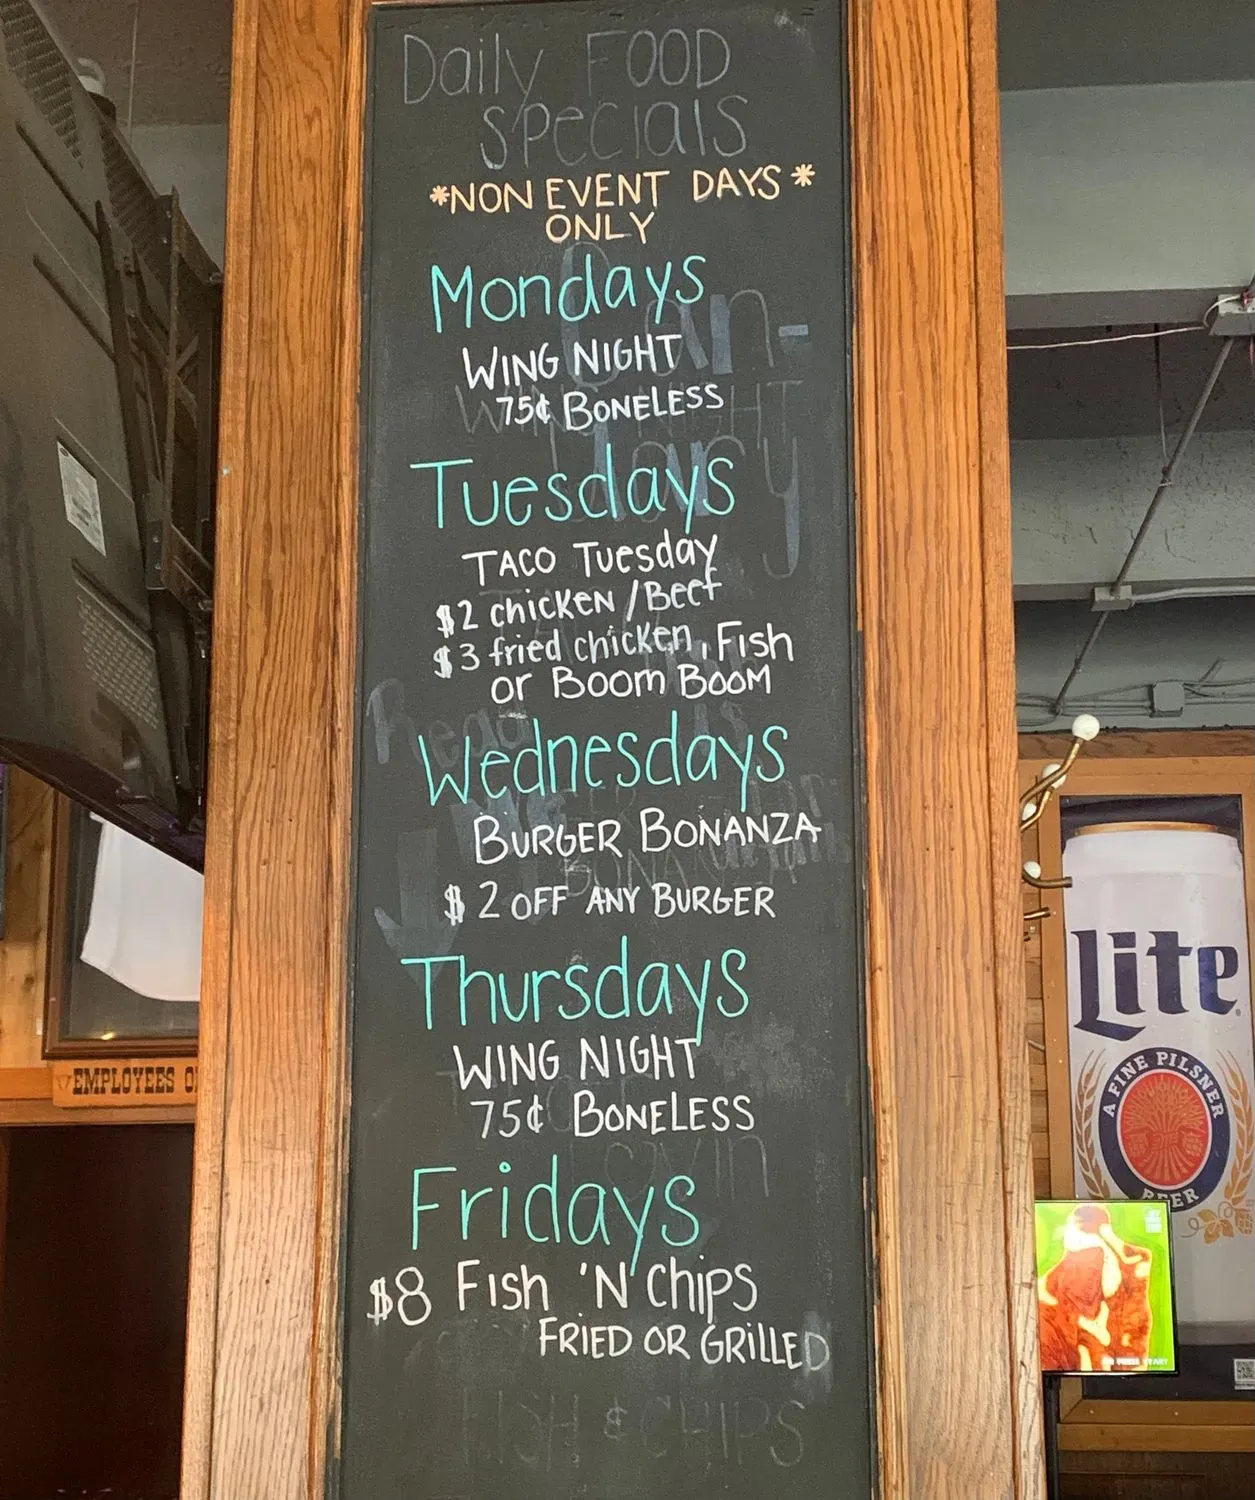 Daily FOOD
specials
*NON EVENT DAYS*
ONLY
Mondays
WING NIGHT
75¢ BONELESS
Tuesdays
TACO Tuesday
$2 chicken/Beef
$3 fried chicken, Fish
or Boom Boom
Wednesdays
BURGER BONANZA
$2 OFF ANY BURGER
Thursdays
WING NIGHT
75¢ BONELESS
Fridays
$8 Fish 'N Chips
FRIED OR GRILLED
FISH & CHIPS
EMPLOYEES
Lite
A FINE PILSNER
BEER